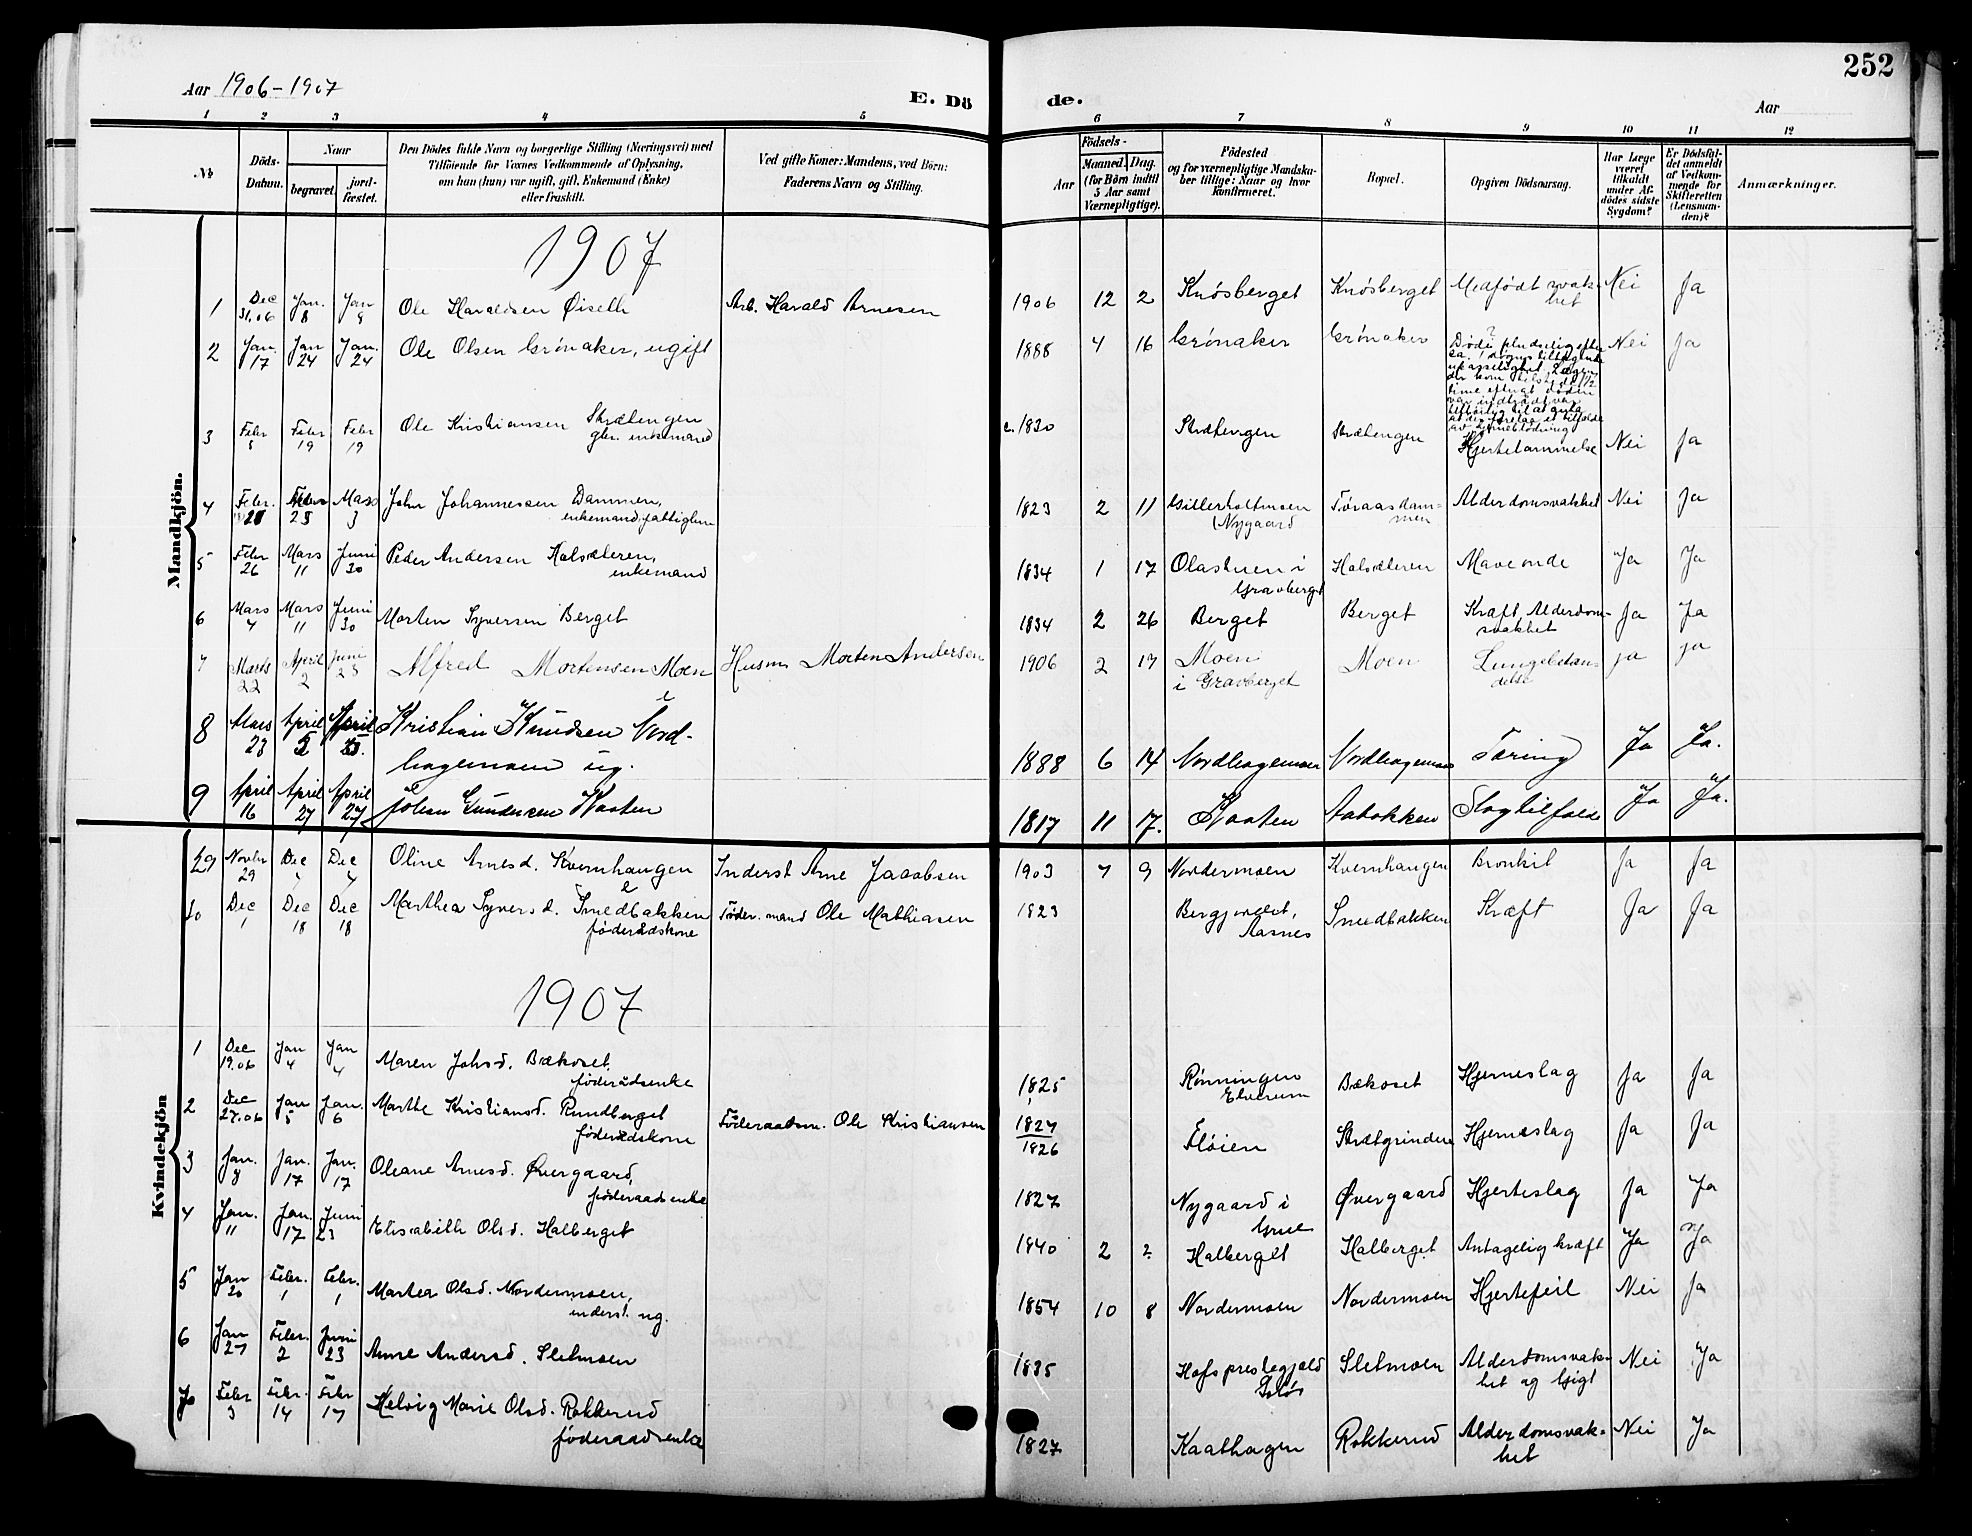 252
Aar 1906-1907
E. Dö de.
Aar
1 2 3 4 5 6 7 8 9 10 11 12
No
Döds-Datum.
Naar
begravet.
jord-fæstet.
Den Dödes fulde Navn og borgerlige Stilling (Næringsvei) med
Tilföiende for Voxnes Vedkommende af Oplysning,
om han (hun) var ugift, gift, Enkemand (Enke)
eller fraskilt.
Ved gifte Koner: Mandens, ved Börn:
Faderens Navn og Stilling.
Födsels-
Aar
Maaned. Dag.
(for Börn indtil
5 Aar samt
Værnepligtige).
Födested
og for værnepligtige Mandska-
ber tillige: Naar og hvor
konfirmeret.
Bopæl.
Opgiven Dödsaarsag.
Har Læge
været
tilkaldt
under Af-
dödes sidste
Sygdom?
Er Dödsfal-
det anmeldt
af Vedkom-
mende for
Skifteretten
(Lensman-
den)?
Anmærkninger.
Mandkjön.
1907
1 Dec 31.06 Jan. 8 Jan 8 Ole Haraldsen Øiseth Arb. Harald Arnesen 1906 12 2 Knøsberget Knøsberget Medfødt svak-
het Nei Ja
2 Jan. 17 Jan 24 Jan. 24 Ole Olsen Grønaker, ugift 1888 4 16 Grønaker Grønaker Døde pludselig efter Nei Ja
3 Febr 8 Febr 19 Febr 19 Ole Kristiansen Skræbengen
gbr. enkemand c. 1830 Skræbengen Skræbengen Hjertelammelse Nei Ja
4 Febr. 20 Febr 28 Mars 3 John Johannessen Dammen,
enkemand, fattiglem 1823 2 11 Gillerholtmoen
(NygaardFøraasdam-
men Alderdomsvakhet Nei Ja
5 Febr 26 Mars 11 Juni 30 Peder Andersen Halsæteren,
enkemand 1834 1 17 Olastuen i
Gravberget Halsæteren Maveonde Ja Ja
6 Mars 4 Mars 11 Juni 30 Morten Syversen Berget 1834 2 26 Berget Berget Kræft, Alderdom-
svakhet Ja Ja
7 Marts 22 April 2 Juni 23 Alfred Mortensen Moen Husm Morten Andersen 1906 2 17 Moen
i Gravberget Moen Lungebetæn-
delse ja ja
8 Mars 23 April 2 April 23. Kristian Knudsen Nord-
hagemoen ug. 1888 6 14 Nordhagemoen Nordhagemoen Tæring Ja Ja.
9 April 16 April 27 April 27 Johan Gundersen Kaaten 1817 11 17. Kaaten Aabakken Slagtilfælde Ja Ja.
Kvindekjön
29 Novbr 29 Dec 7 Dec 7 Oline Arnesd. Kvernhaugen Inderst Arne Jacobsen 1903 7 9 Nordermoen Kvernhaugen Bronkit Ja Ja
30 Dec 1 Dec 18 Dec 18 Marthea Syversd. Smedbakken
føderådskone Føder. mand Ole Mathiasen 1823 Aasnes Smedbakken Kræft Ja Ja
1907
1 Dec 19.06 Jan 4 Jan 4 Maren Johsd. Bækoset,
føderådsenke 1825 Rønningen
Elverum Bækoset Hjerneslag Ja Ja
2 Dec 27.06 Jan 5 Jan. 6 Marthe Kristiansd. Rundberget
føderådskone Føderaadsm. Ole Kristiansen 1827
1826 Fløien Hjerneslag Ja Ja
3 Jan. 8 Jan. 17 Jan. 17 Oleane Arnesd. Øvergaard,
føderaadsenke 1827 Nygaard i
Grue Øvergaard Hjerteslag Ja Ja
4 Jan. 11 Jan. 17 Juni 23 Elisabeth Olsd. Halberget 1840 2 2 Halberget Halberget Antagelig kræft Ja Ja
5 Jan 20 Febr. 1 Febr. 1 Martea Olsd. Nordermoen,
inderst. ug. 1854 10 8 Nordermoen Nordermoen Hjertefeil Nei Ja
6 Jan 27 Febr. 2 Juni 23 Anne Andersd. Sletmoen 1835 Hofs prestegjeld
Solør Sletmoen Alderdomsvak-
het og Gigt Nei Ja
7 Febr 3 Febr. 14 Febr 17 Helvig Marie Olsd. Rokkerud
føderaadsenke 1827 Kaathagen Rokkerud Alderdomsvak-
het Nei Ja